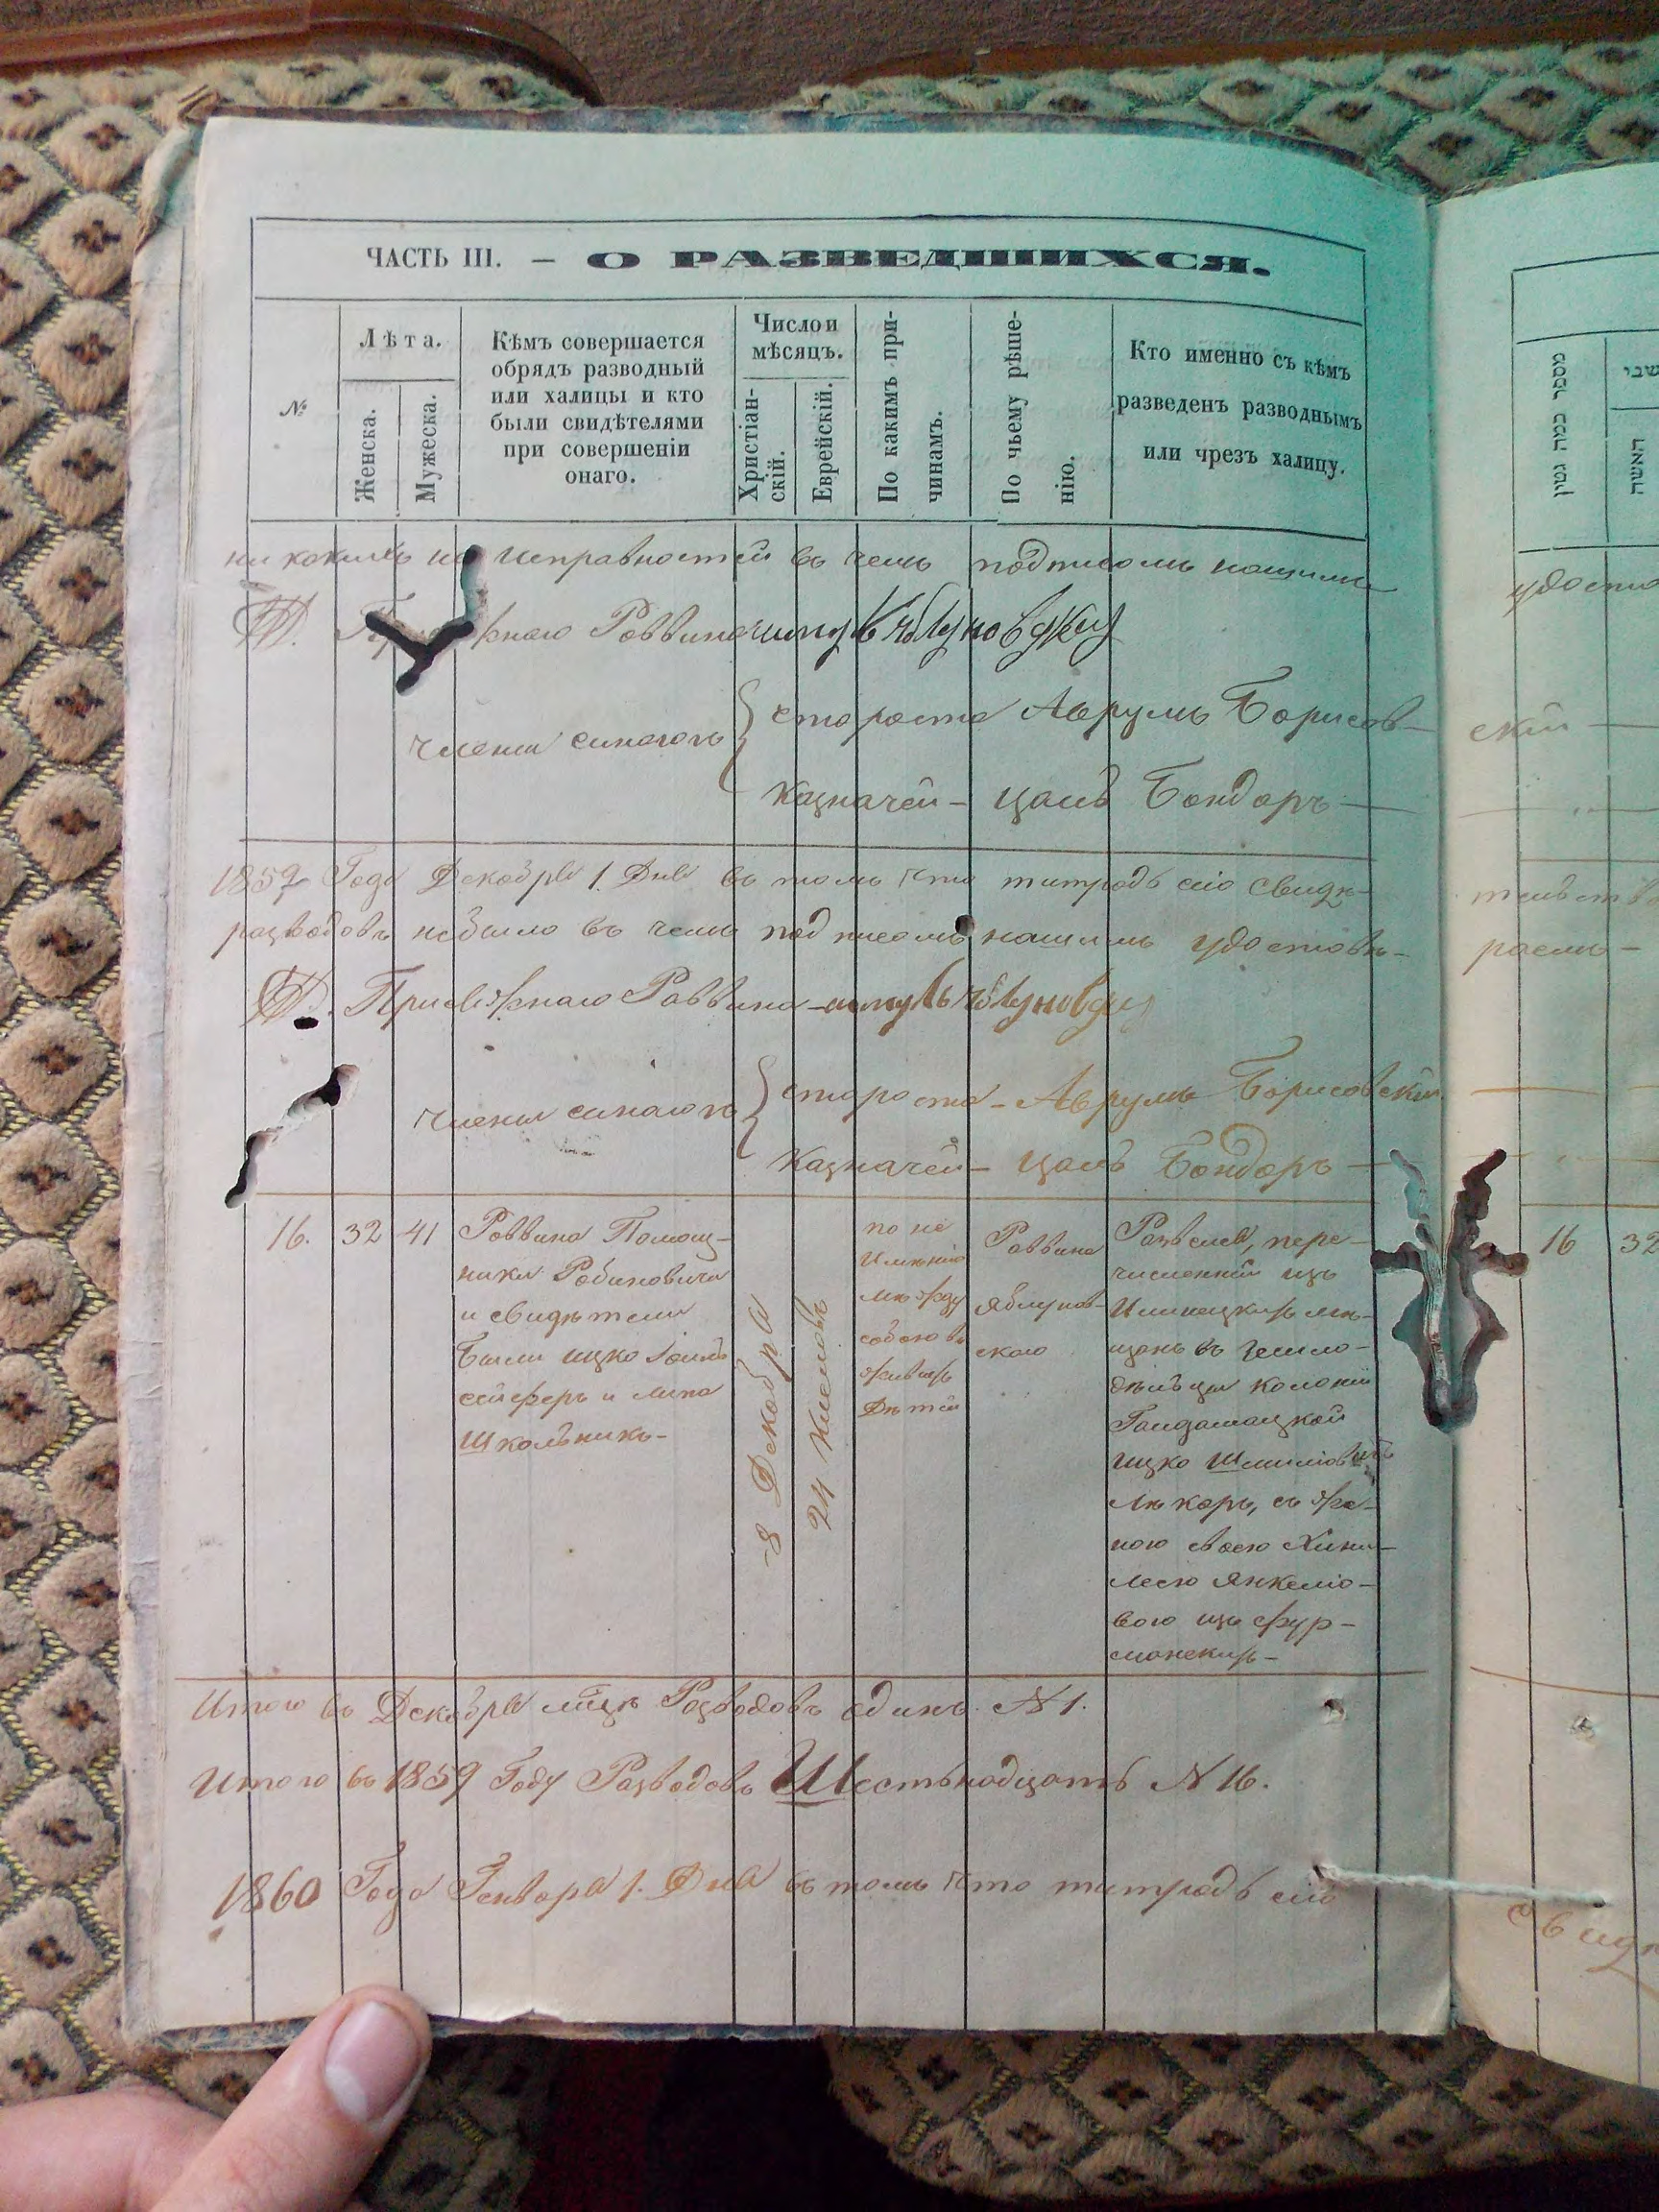 ЧАСТЬ III. – О РАЗВЕДШИХСЯ.
№
Лѣта.
Женска.
Мужеска.
Кѣмъ совершается
обрядъ разводный
или халицы и кто
были свидѣтелями
при совершеніи
онаго.
Число и
мѣсяцъ.
Христіан-
скій.
Еврейскій.
По какимъ при-
чинамъ.
По чьему рѣше-
нію.
Кто именно съ кѣмъ
разведенъ разводнымъ
или чрезъ халицу.
исправностей въ чемъ подписомъ нашимъ
Раввина
члены синагогъ
староста Аврумъ Борисов-
скій
Казначей – Цаль Бондаръ
1859 Года Декабря 1. Дня въ томъ что тетрадь сію свидѣ-
разводовъ небыло въ чемъ подписомъ нашимъ удостовѣ-
раемъ –
Присяжнаго Раввина –
члены синагогъ
староста – Аврумъ Борисовскій
Казначей – Цаль Бондаръ –
16. 32 41
Раввина Помощ-
ника Рабиновича
и свидѣтели
были Ицко
и
Школьникъ –
8 Декабря
24 Кислевъ
по не
имѣнію
между
собою въ
живыхъ
дѣтей
Раввина
Яблунов-
скаго
Развелся, пере-
численный изъ
Илинецкихъ мѣ-
щанъ въ Земло-
дѣльцы колоніи
Гайдамацкой
Ицко Шмиліовичъ
Лѣкаръ, съ же-
ною своею Хина-
Лесею Янкеліо-
вою изъ Фур-
манскихъ –
Итого въ Декабрѣ м-цѣ Разводовъ одинъ. N 1.
Итого въ 1859 Году Разводовъ Шестьнадцать N 16.
1860 Года Генваря 1. Дня въ томъ что тетрадь сію
מספר כמה גטין
האשה
удосто
16 32